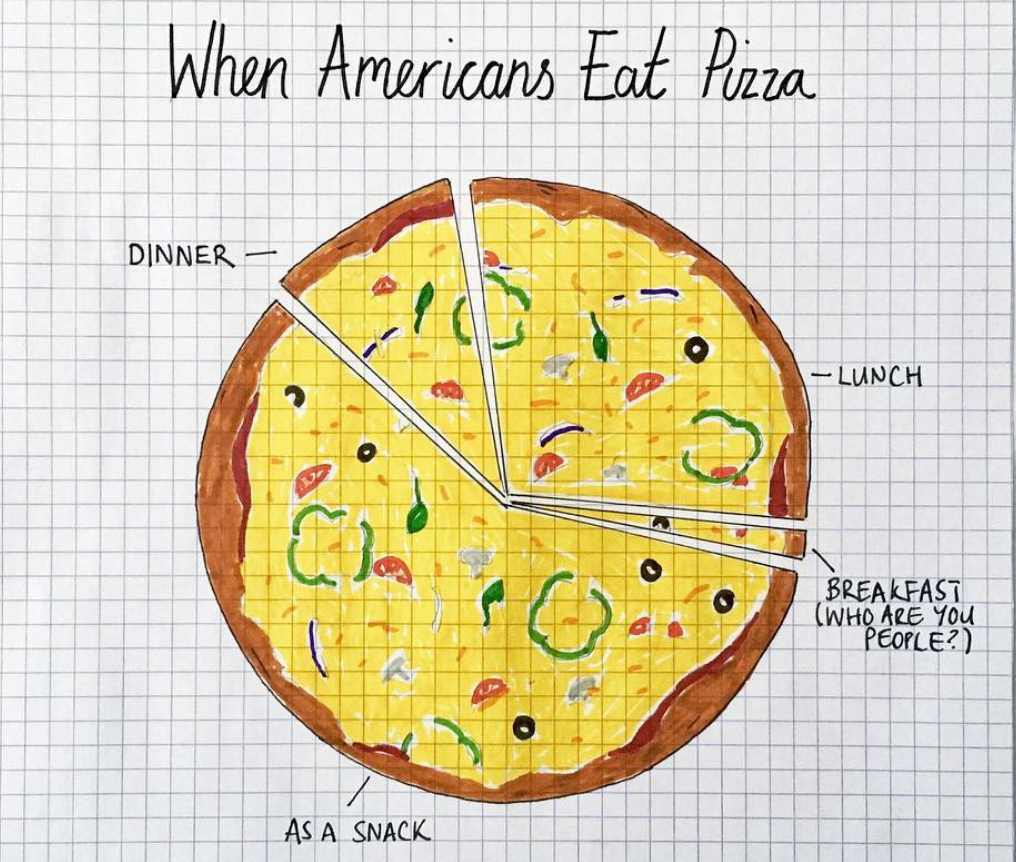 When Americans Eat Pizza
DINNER
LUNCH
BREAKFAST
(WHO ARE YOU
PEOPLE?)
AS A SNACK